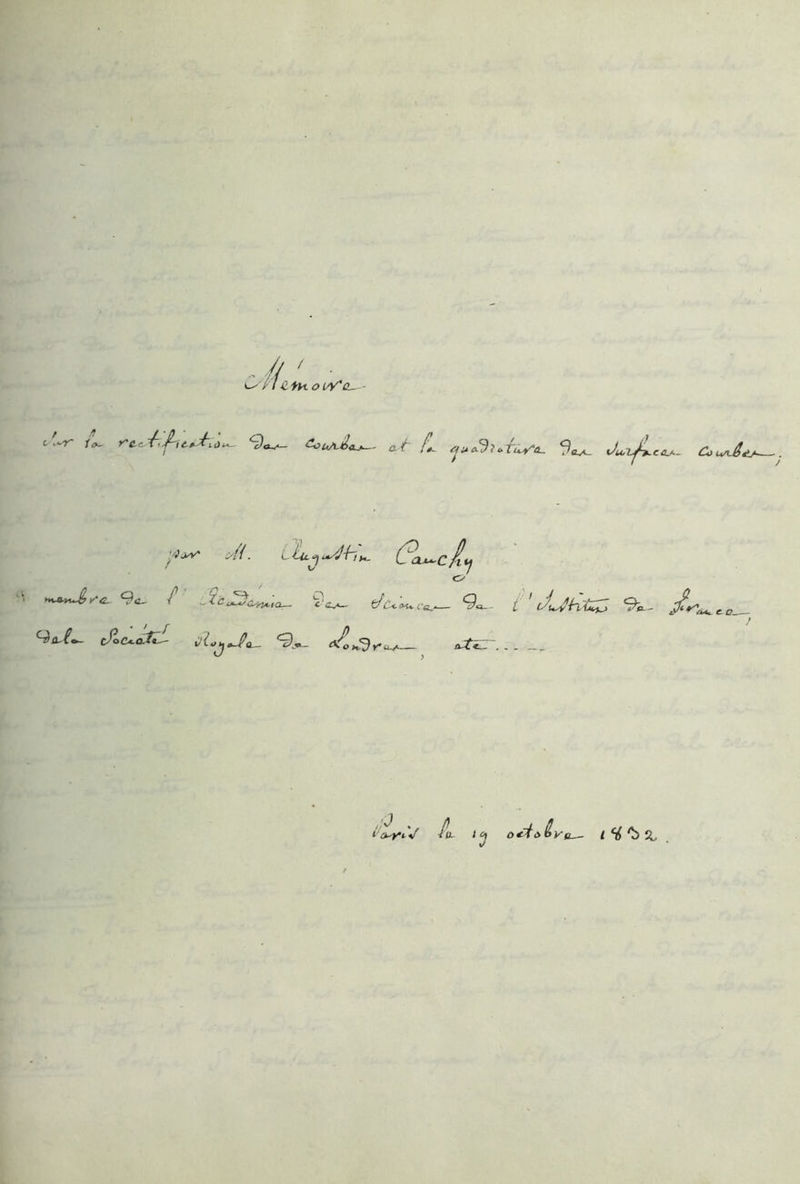 Mémoire
Sur la rectification des Courbes et la quadrature des Surfaces Courbes.
par M. Augustin Cauchy
membre de l'Académie des Sciences de l'Institut de France,
de la Société Royale de Londres, etc....
Paris le 19 octobre 1832.